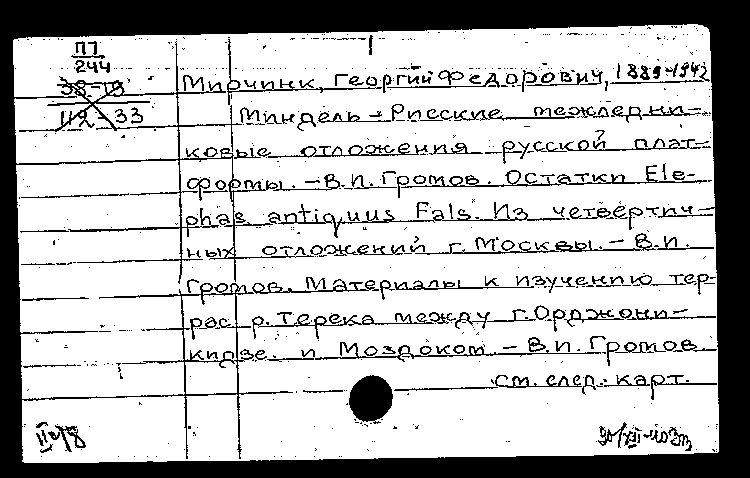 П7
244
38-18
112-33
Мирчинк, Георгий Федорович, 1889-1942
Миндель-Рисские межледни-
ковые отложения русской плат-
формы. - В.И. Громов. Остатки Ele-
phas antiquus Fals. Из четвертич-
ных отложений г. Москвы. - В.И.
Громов. Материалы к изучению тер-
рас р. Терека между г. Орджони-
кидзе. и Моздоком. - В.И. Громов
см. след. карт.